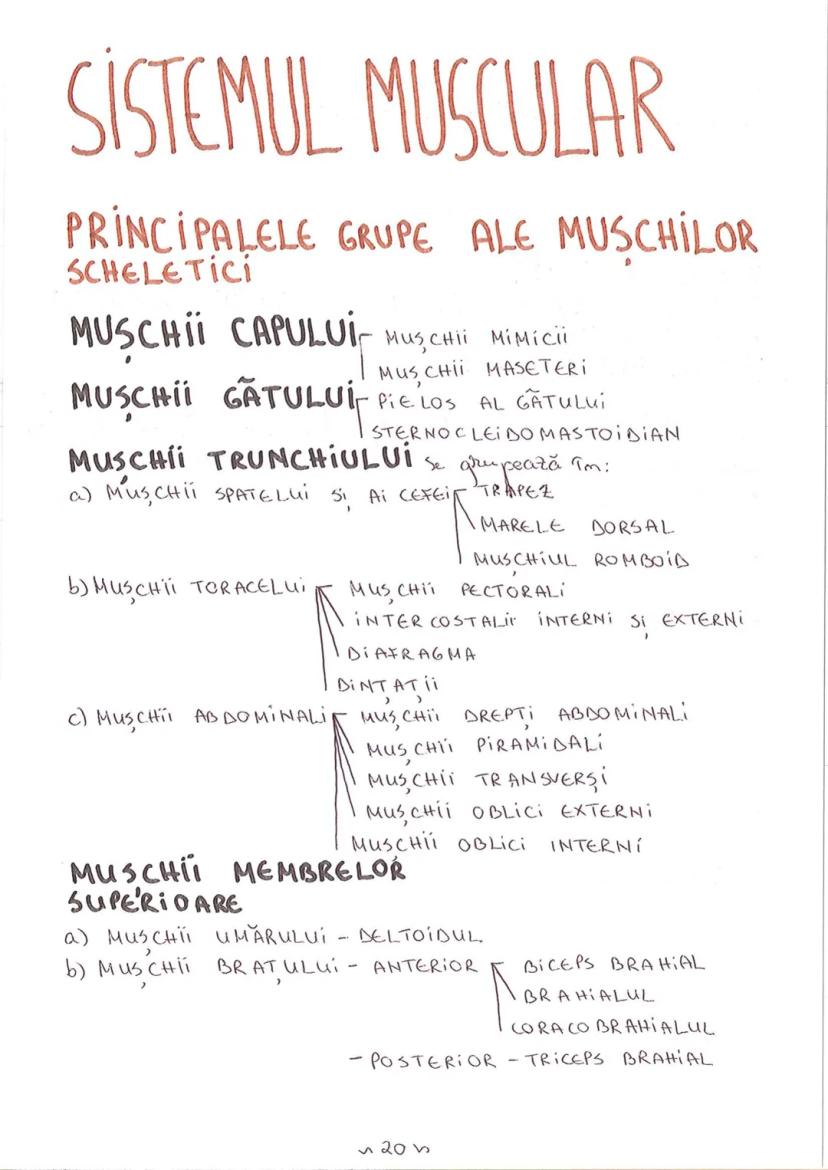 SISTEMUL MUSCULAR
PRINCIPALELE GRUPE ALE MUȘCHILOR
SCHELETICI
MUȘCHII CAPULUI - MUȘCHII MIMICII
MUȘCHII MASETERI
MUȘCHII GÂTULUI - PIELOS AL GÂTULUI
STERNOCLEIDOMASTOIDIAN
MUȘCHII TRUNCHIULUI se grupează în:
a) MUȘCHII SPATELUI ȘI AI CEFEI - TRAPEZ
MARELE DORSAL
MUȘCHIUL ROMBOID
b) MUȘCHII TORACELUI - MUȘCHII PECTORALI
INTERCOSTALII INTERNI ȘI EXTERNI
DIAFRAGMA
DINȚAȚII
c) MUȘCHII ABDOMINALI - MUȘCHII DREPȚI ABDOMINALI
MUȘCHII PIRAMIDALI
MUȘCHII TRANSVERȘI
MUȘCHII OBLICI EXTERNI
MUSCHII OBLICI INTERNI
MUSCHII MEMBRELOR
SUPERIOARE
a) MUȘCHII UMĂRULUI - DELTOIDUL
b) MUȘCHII BRAȚULUI - ANTERIOR - BICEPS BRAHIAL
BRAHIALUL
CORACOBRAHIALUL
- POSTERIOR - TRICEPS BRAHIAL
~ 20 ~